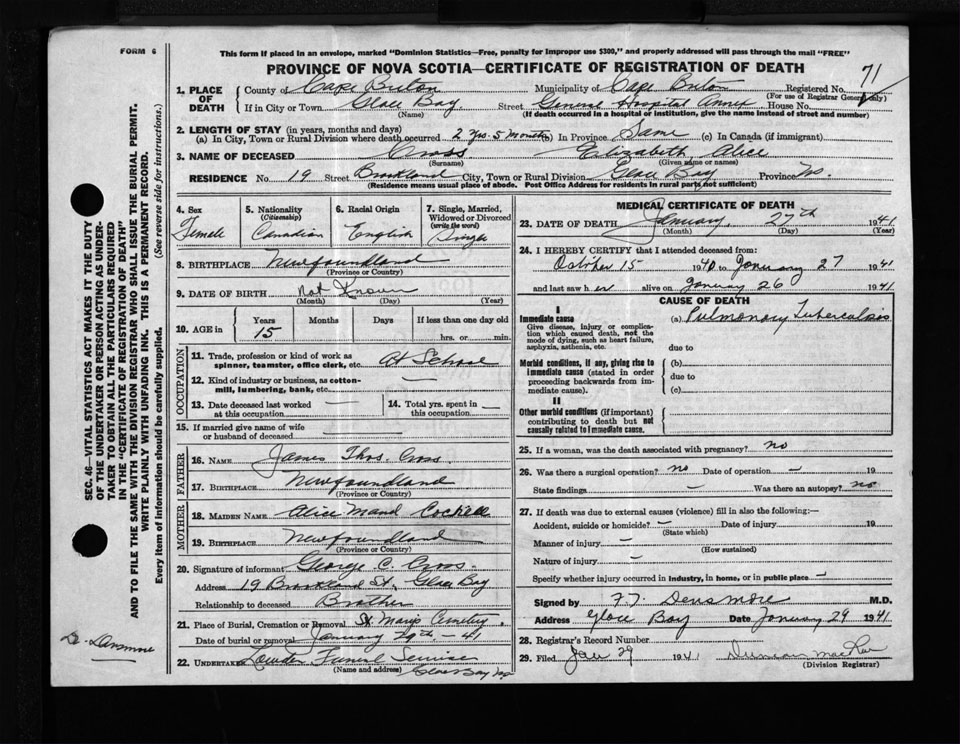 FORM 6
This form if placed in an envelope, marked "Dominion Statistics—Free, penalty for improper use $300," and properly addressed will pass through the mail "FREE"
PROVINCE OF NOVA SCOTIA—CERTIFICATE OF REGISTRATION OF DEATH
71
1. PLACE OF DEATH
County of Cape Breton Municipality of Cape Breton Registered No.
(For use of Registrar General only)
If in City or Town Glace Bay Street General Hospital Annex House No.
(Name) (If death occurred in a hospital or institution, give the name instead of street and number)
2. LENGTH OF STAY (in years, months and days)
(a) In City, Town or Rural Division where death occurred 2 yrs. 5 months (b) In Province Same (c) In Canada (if immigrant)
3. NAME OF DECEASED Cross Elizabeth Alice
(Surname) (Given name or names)
RESIDENCE No. 19 Street Brookland City, Town or Rural Division Glace Bay Province N.S.
(Residence means usual place of abode. Post Office Address for residents in rural parts not sufficient)
4. Sex
Female
5. Nationality
(Citizenship)
Canadian
6. Racial Origin
English
7. Single, Married, Widowed or Divorced
(write the word)
Single
8. BIRTHPLACE Newfoundland
(Province or Country)
9. DATE OF BIRTH Not Known
(Month) (Day) (Year)
10. AGE in
Years Months Days If less than one day old
15 hrs. or min.
OCCUPATION
11. Trade, profession or kind of work as
spinner, teamster, office clerk, etc. At School
12. Kind of industry or business, as cotton-
mill, lumbering, bank, etc. —
13. Date deceased last worked
at this occupation —
14. Total yrs. spent in
this occupation —
15. If married give name of wife
or husband of deceased —
FATHER
16. NAME James Thos. Cross
17. BIRTHPLACE Newfoundland
(Province or Country)
MOTHER
18. MAIDEN NAME Alice Maud
19. BIRTHPLACE Newfoundland
(Province or Country)
20. Signature of informant George C. Cross
Address 19 Brookland St., Glace Bay
Relationship to deceased Brother
21. Place of Burial, Cremation or Removal St. Marys Cemetery.
Date of burial or removal January 29th - 41
22. UNDERTAKER Funeral Service
(Name and address) Glace Bay NS
MEDICAL CERTIFICATE OF DEATH
23. DATE OF DEATH January 27th 1941
(Month) (Day) (Year)
24. I HEREBY CERTIFY that I attended deceased from:
October 15 1940 to January 27 1941
and last saw her alive on January 26 1941
CAUSE OF DEATH
I
Immediate cause (a) Pulmonary Tuberculosis
Give disease, injury or complica-
tion which caused death, not the
mode of dying, such as heart failure,
asphyxia, asthenia, etc.
due to
Morbid conditions, if any, giving rise to
immediate cause (stated in order
proceeding backwards from im-
mediate cause).
(b)
due to
(c)
II
Other morbid conditions (if important)
contributing to death but not
causally related to immediate cause.
25. If a woman, was the death associated with pregnancy? no
26. Was there a surgical operation? no Date of operation — 19
State findings — Was there an autopsy? no
27. If death was due to external causes (violence) fill in also the following:—
Accident, suicide or homicide? — Date of injury 19
(State which)
Manner of injury —
(How sustained)
Nature of injury —
Specify whether injury occurred in industry, in home, or in public place —
Signed by F.T. Densmore M.D.
Address Glace Bay Date January 29 1941
28. Registrar's Record Number
29. Filed Jan 29 1941 Duncan MacRae
(Division Registrar)
SEC. 46—VITAL STATISTICS ACT MAKES IT THE DUTY
OF THE UNDERTAKER OR PERSON ACTING AS UNDER-
TAKER TO OBTAIN ALL THE PARTICULARS REQUIRED
IN THE "CERTIFICATE OF REGISTRATION OF DEATH"
AND TO FILE THE SAME WITH THE DIVISION REGISTRAR WHO SHALL ISSUE THE BURIAL PERMIT.
WRITE PLAINLY WITH UNFADING INK. THIS IS A PERMANENT RECORD.
Every item of information should be carefully supplied. (See reverse side for instructions.)